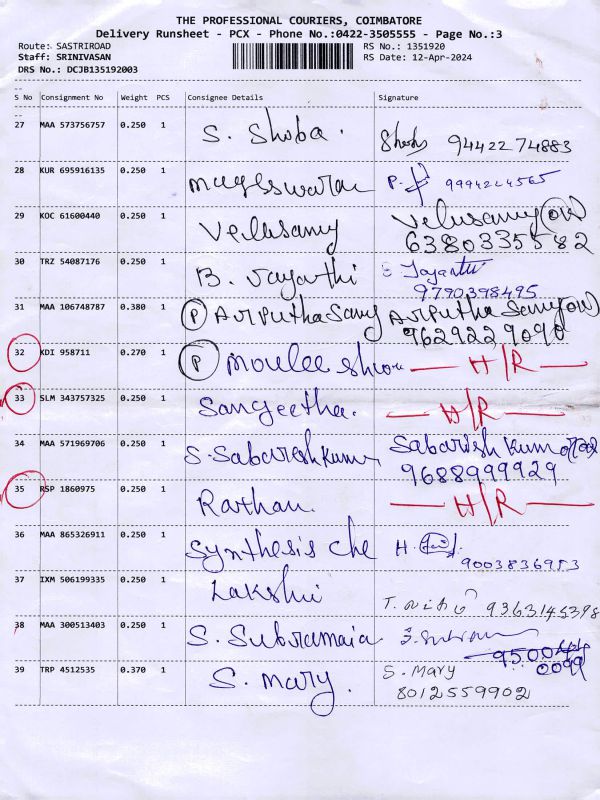 THE PROFESSIONAL COURIERS, COIMBATORE
Delivery Runsheet - PCX - Phone No.:0422-3505555 - Page No.:3
Route: SASTRIROAD RS No.: 1351920
Staff: SRINIVASAN RS Date: 12-Apr-2024
DRS No.: DCJB135192003
S No Consignment No Weight PCS Consignee Details Signature
27 MAA 573756757 0.250 1 S. Shoba. 94422 74883
28 KUR 695916135 0.250 1 Mugeswaran P. 9994224565
29 KOC 61600440 0.250 1 Velusamy Velusamy
6380335582
30 TRZ 54087176 0.250 1 B. Jayanthi
9790398495
31 MAA 106748787 0.380 1 P ArputhaSamy ArputhaSamy
9629229090
32 KDI 958711 0.270 1 P H/R
33 SLM 343757325 0.250 1 Sangeetha. H/R
34 MAA 571969706 0.250 1 S. Sabarish Kumar Sabarish Kumar
9688999929
35 RSP 1860975 0.250 1 Rathan. H/R
36 MAA 865326911 0.250 1 Synthesis che H.
9003836953
37 IXM 506199335 0.250 1 T. 9363145398
38 MAA 300513403 0.250 1 S. Subramaia
39 TRP 4512535 0.370 1 S. Mary. S. Mary
8012559902